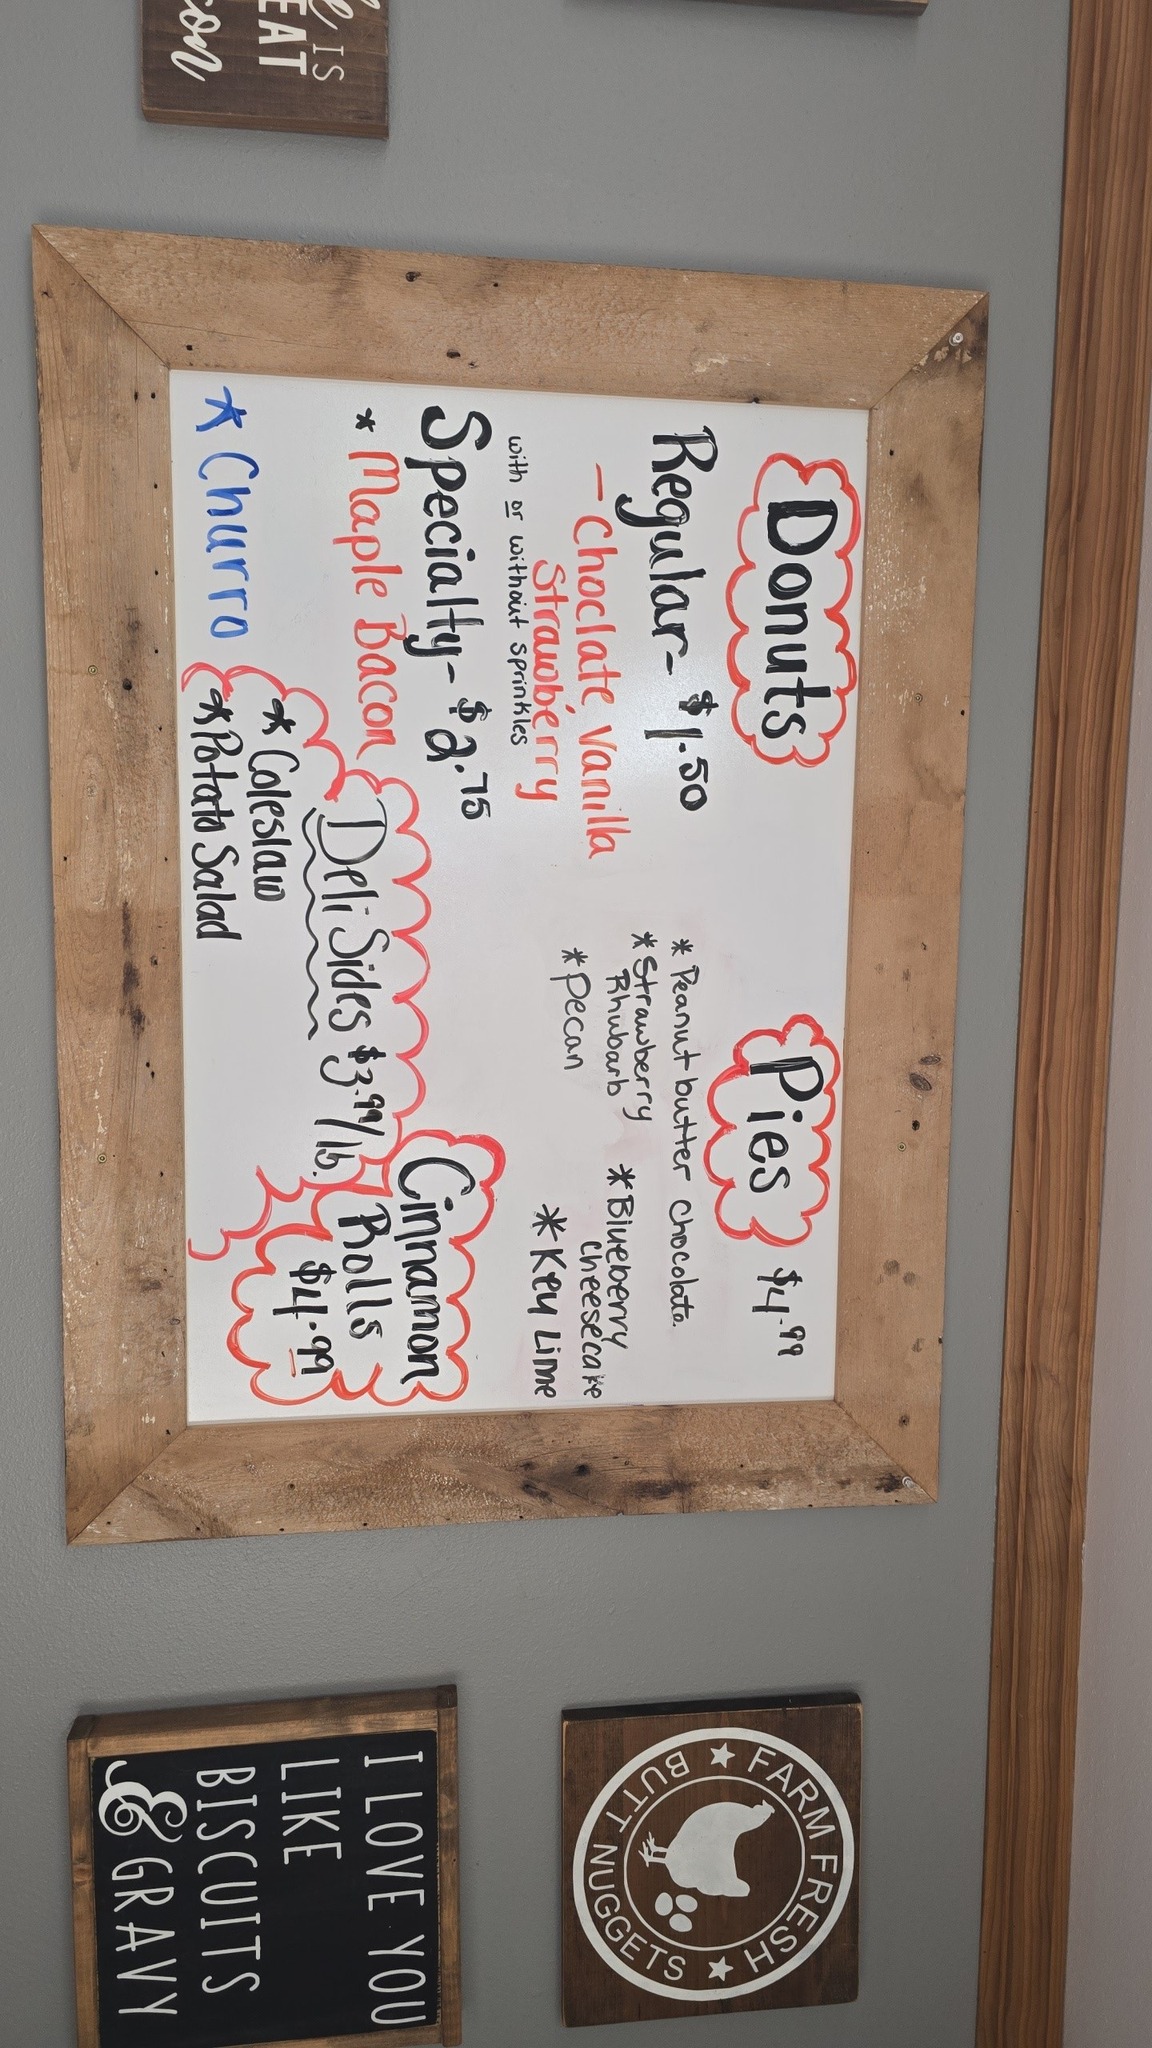 e IS
EAT
con
Donuts
Regular- $1.50
- Choclate Vanilla
Strawberry
with or without sprinkles
Specialty- $2.75
* Maple Bacon
* Churro
Pies $4.99
* Peanut butter chocolate.
* Strawberry
Rhubarb
* Pecan
* Blueberry
Cheesecake
* Key Lime
Deli Sides $3.99/lb.
* Coleslaw
* Potato Salad
Cinnamon
Rolls
$4.99
FARM FRESH
BUTT NUGGETS
I LOVE YOU
LIKE
BISCUITS
& GRAVY